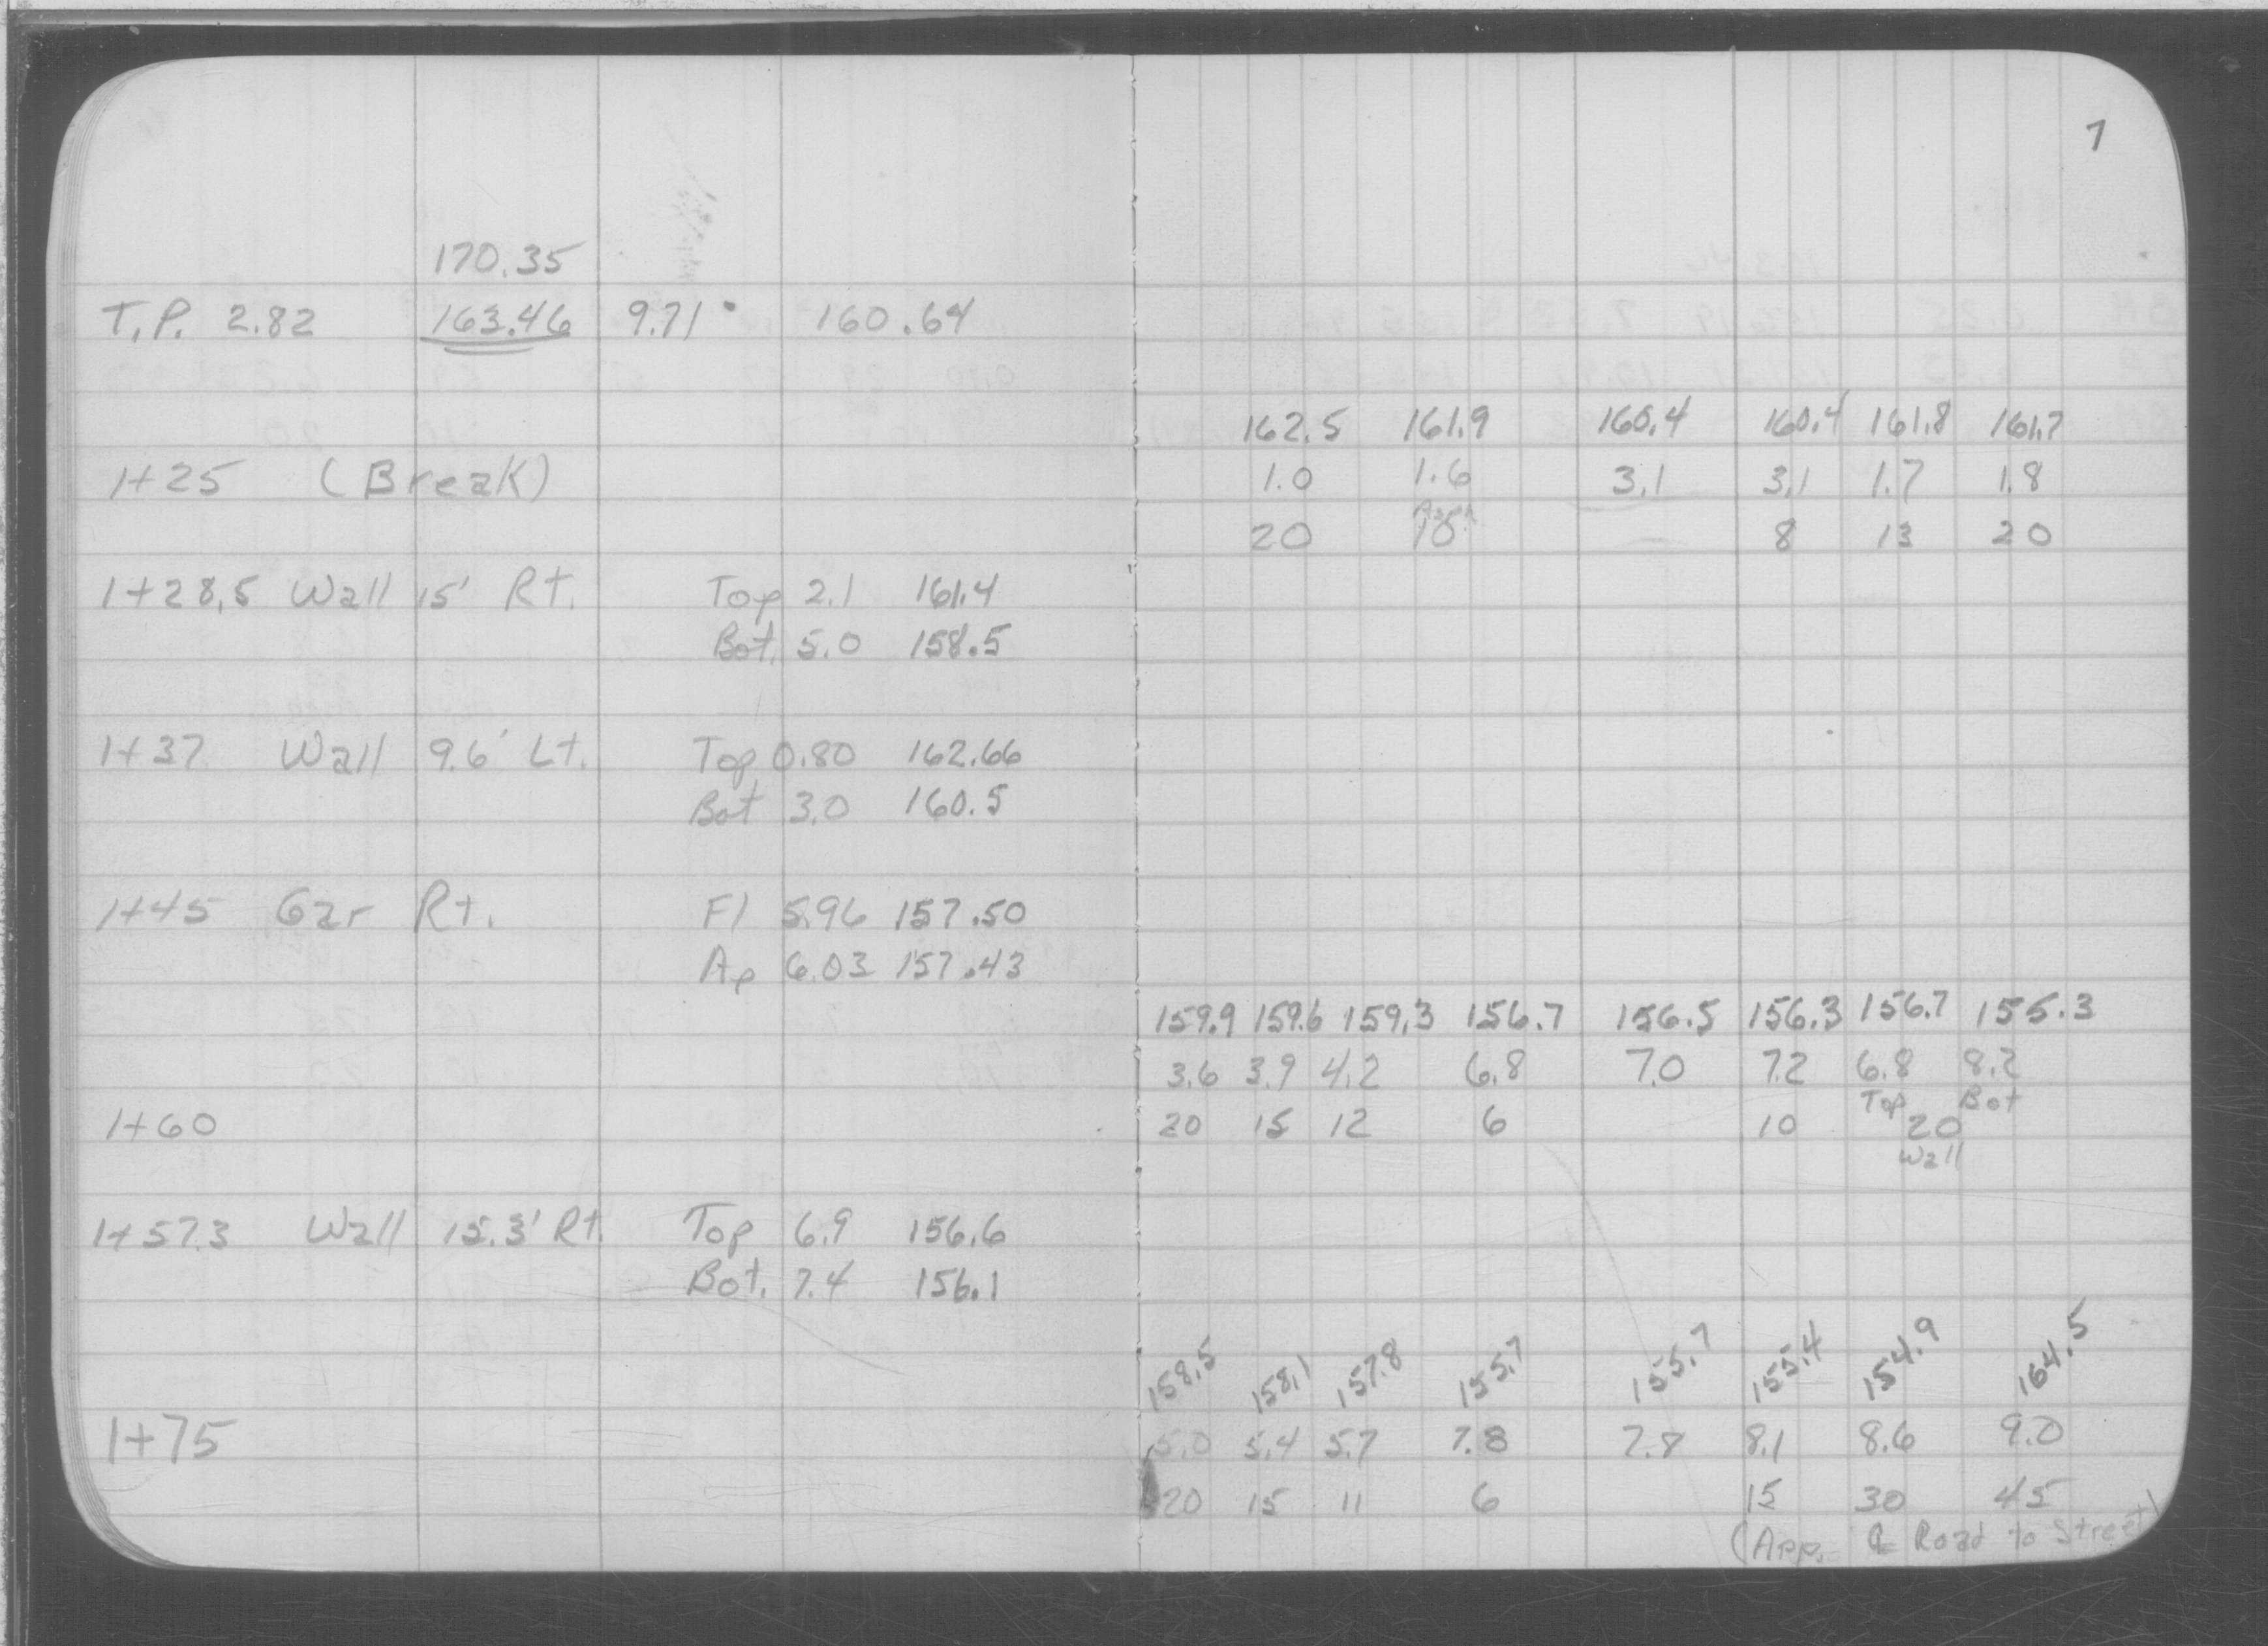 7
170.35
T.P. 2.82 163.46 9.71 160.64
162.5 161.9 160.4 160.4 161.8 161.7
1+25 (Break) 1.0 1.6 3.1 3.1 1.7 1.8
Asph
20 10 8 13 20
1+28.5 Wall 15' Rt. Top 2.1 161.4
Bot. 5.0 158.5
1+37 Wall 9.6' Lt. Top 0.80 162.66
Bot 3.0 160.5
1+45 Gar Rt. Fl 5.96 157.50
Ap 6.03 157.43
159.9 159.6 159.3 156.7 156.5 156.3 156.7 155.3
3.6 3.9 4.2 6.8 7.0 7.2 6.8 8.2
Top Bot
1+60 20 15 12 6 10 20
Wall
1+57.3 Wall 15.3' Rt. Top 6.9 156.6
Bot. 7.4 156.1
158.5 158.1 157.8 155.7 155.7 155.4 154.9 164.5
1+75 5.0 5.4 5.7 7.8 7.8 8.1 8.6 9.0
20 15 11 6 15 30 45
(App. ℄ Road to Street)